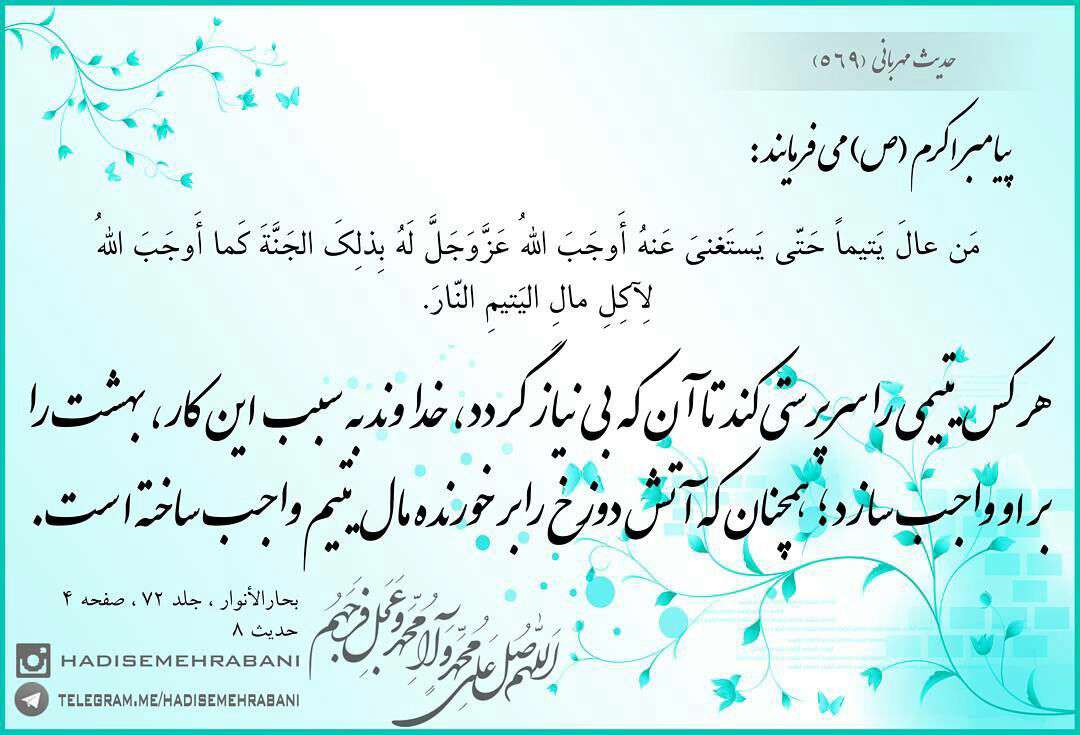 حدیث مهربانی (۵۶۹)
پیامبر اکرم (ص) می فرمایند:
مَن عالَ یَتیماً حَتّی یَستَغنیَ عَنهُ أَوجَبَ اللهُ عَزَّوَجَلَّ لَهُ بِذلِکَ الجَنَّةَ کَما أَوجَبَ اللهُ
لِآکِلِ مالِ الیَتیمِ النّارَ.
هر کس یتیمی را سرپرستی کند تا آن که بی نیاز گردد، خداوند به سبب این کار، بهشت را
بر او واجب سازد؛ همچنان که آتش دوزخ را بر خورنده مال یتیم واجب ساخته است.
بحارالأنوار ، جلد ۷۲ ، صفحه ۴
حدیث ۸
اَللّهُمَّ صَلِّ عَلی مُحَمَّدٍ وَآلِ مُحَمَّدٍ وَعَجِّل فَرَجَهُم
HADISEMEHRABANI
TELEGRAM.ME/HADISEMEHRABANI